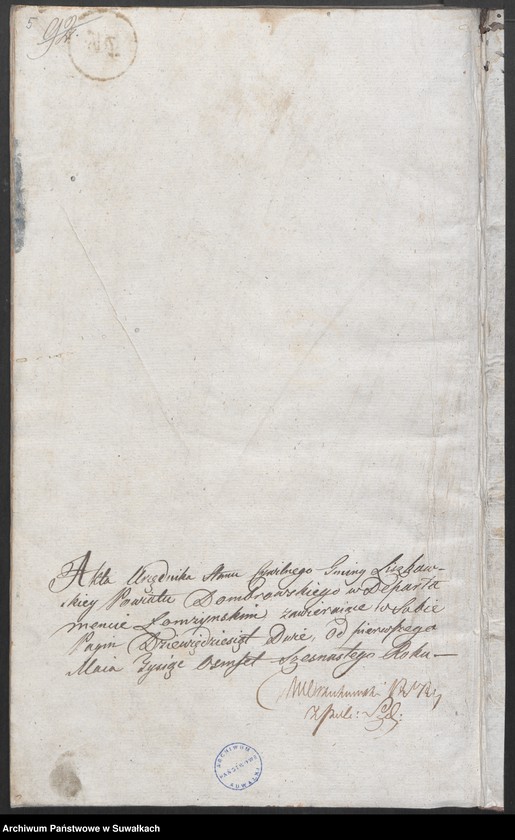 5
92.
Akta Urzędnika Stanu Cywilnego Gminy
skiey Powiatu Dombrowskiego w Departa
mencie Łomzynskim zawieraiące w Sobie
Pagin Dziewięćdziesiąt Dwie, od pierwszego
Maia Tysiąc Osmset Szesnastego Roku —
ARCHIWUM
PAŃSTWOWE
SUWAŁKI
Archiwum Państwowe w Suwałkach